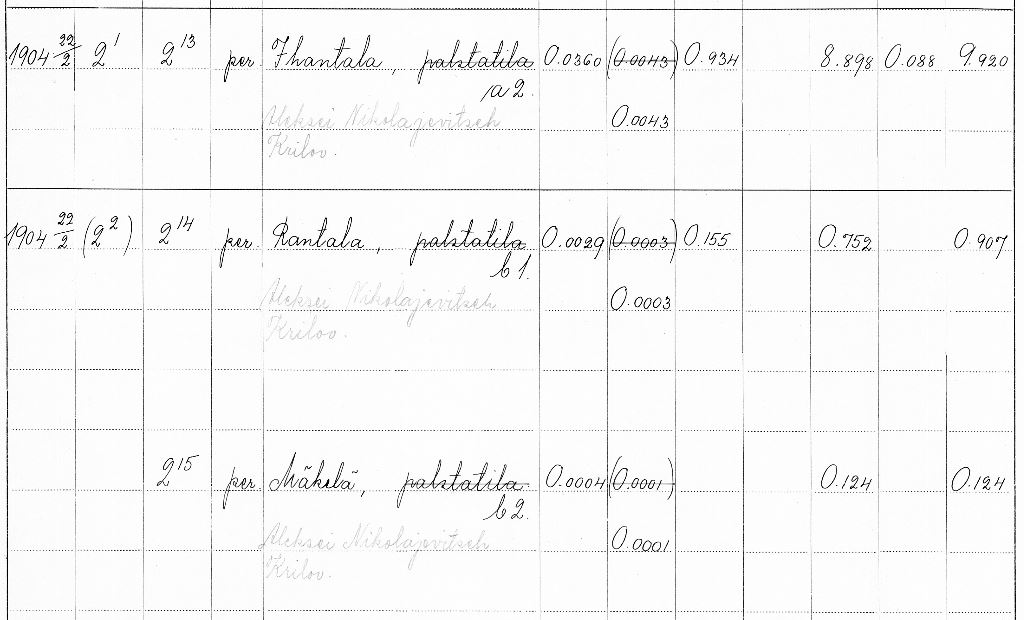 1904 22/2 2¹ 2¹³ per Ihantala, palstatila 0.0360 (0.0043) 0.934 8.898 0.088 9.920
a 2.
Aleksei Nikolajevitsch 0.0043
Krilov.
1904 22/2 (2²) 2¹⁴ per. Rantala, palstatila 0.0029 (0.0003) 0.155 0.752 0.907
b 1.
Aleksei Nikolajevitsch 0.0003
Krilov.
2¹⁵ per. Mäkelä, palstatila 0.0004 (0.0001) 0.124 0.124
b 2.
Aleksei Nikolajevitsch 0.0001
Krilov.